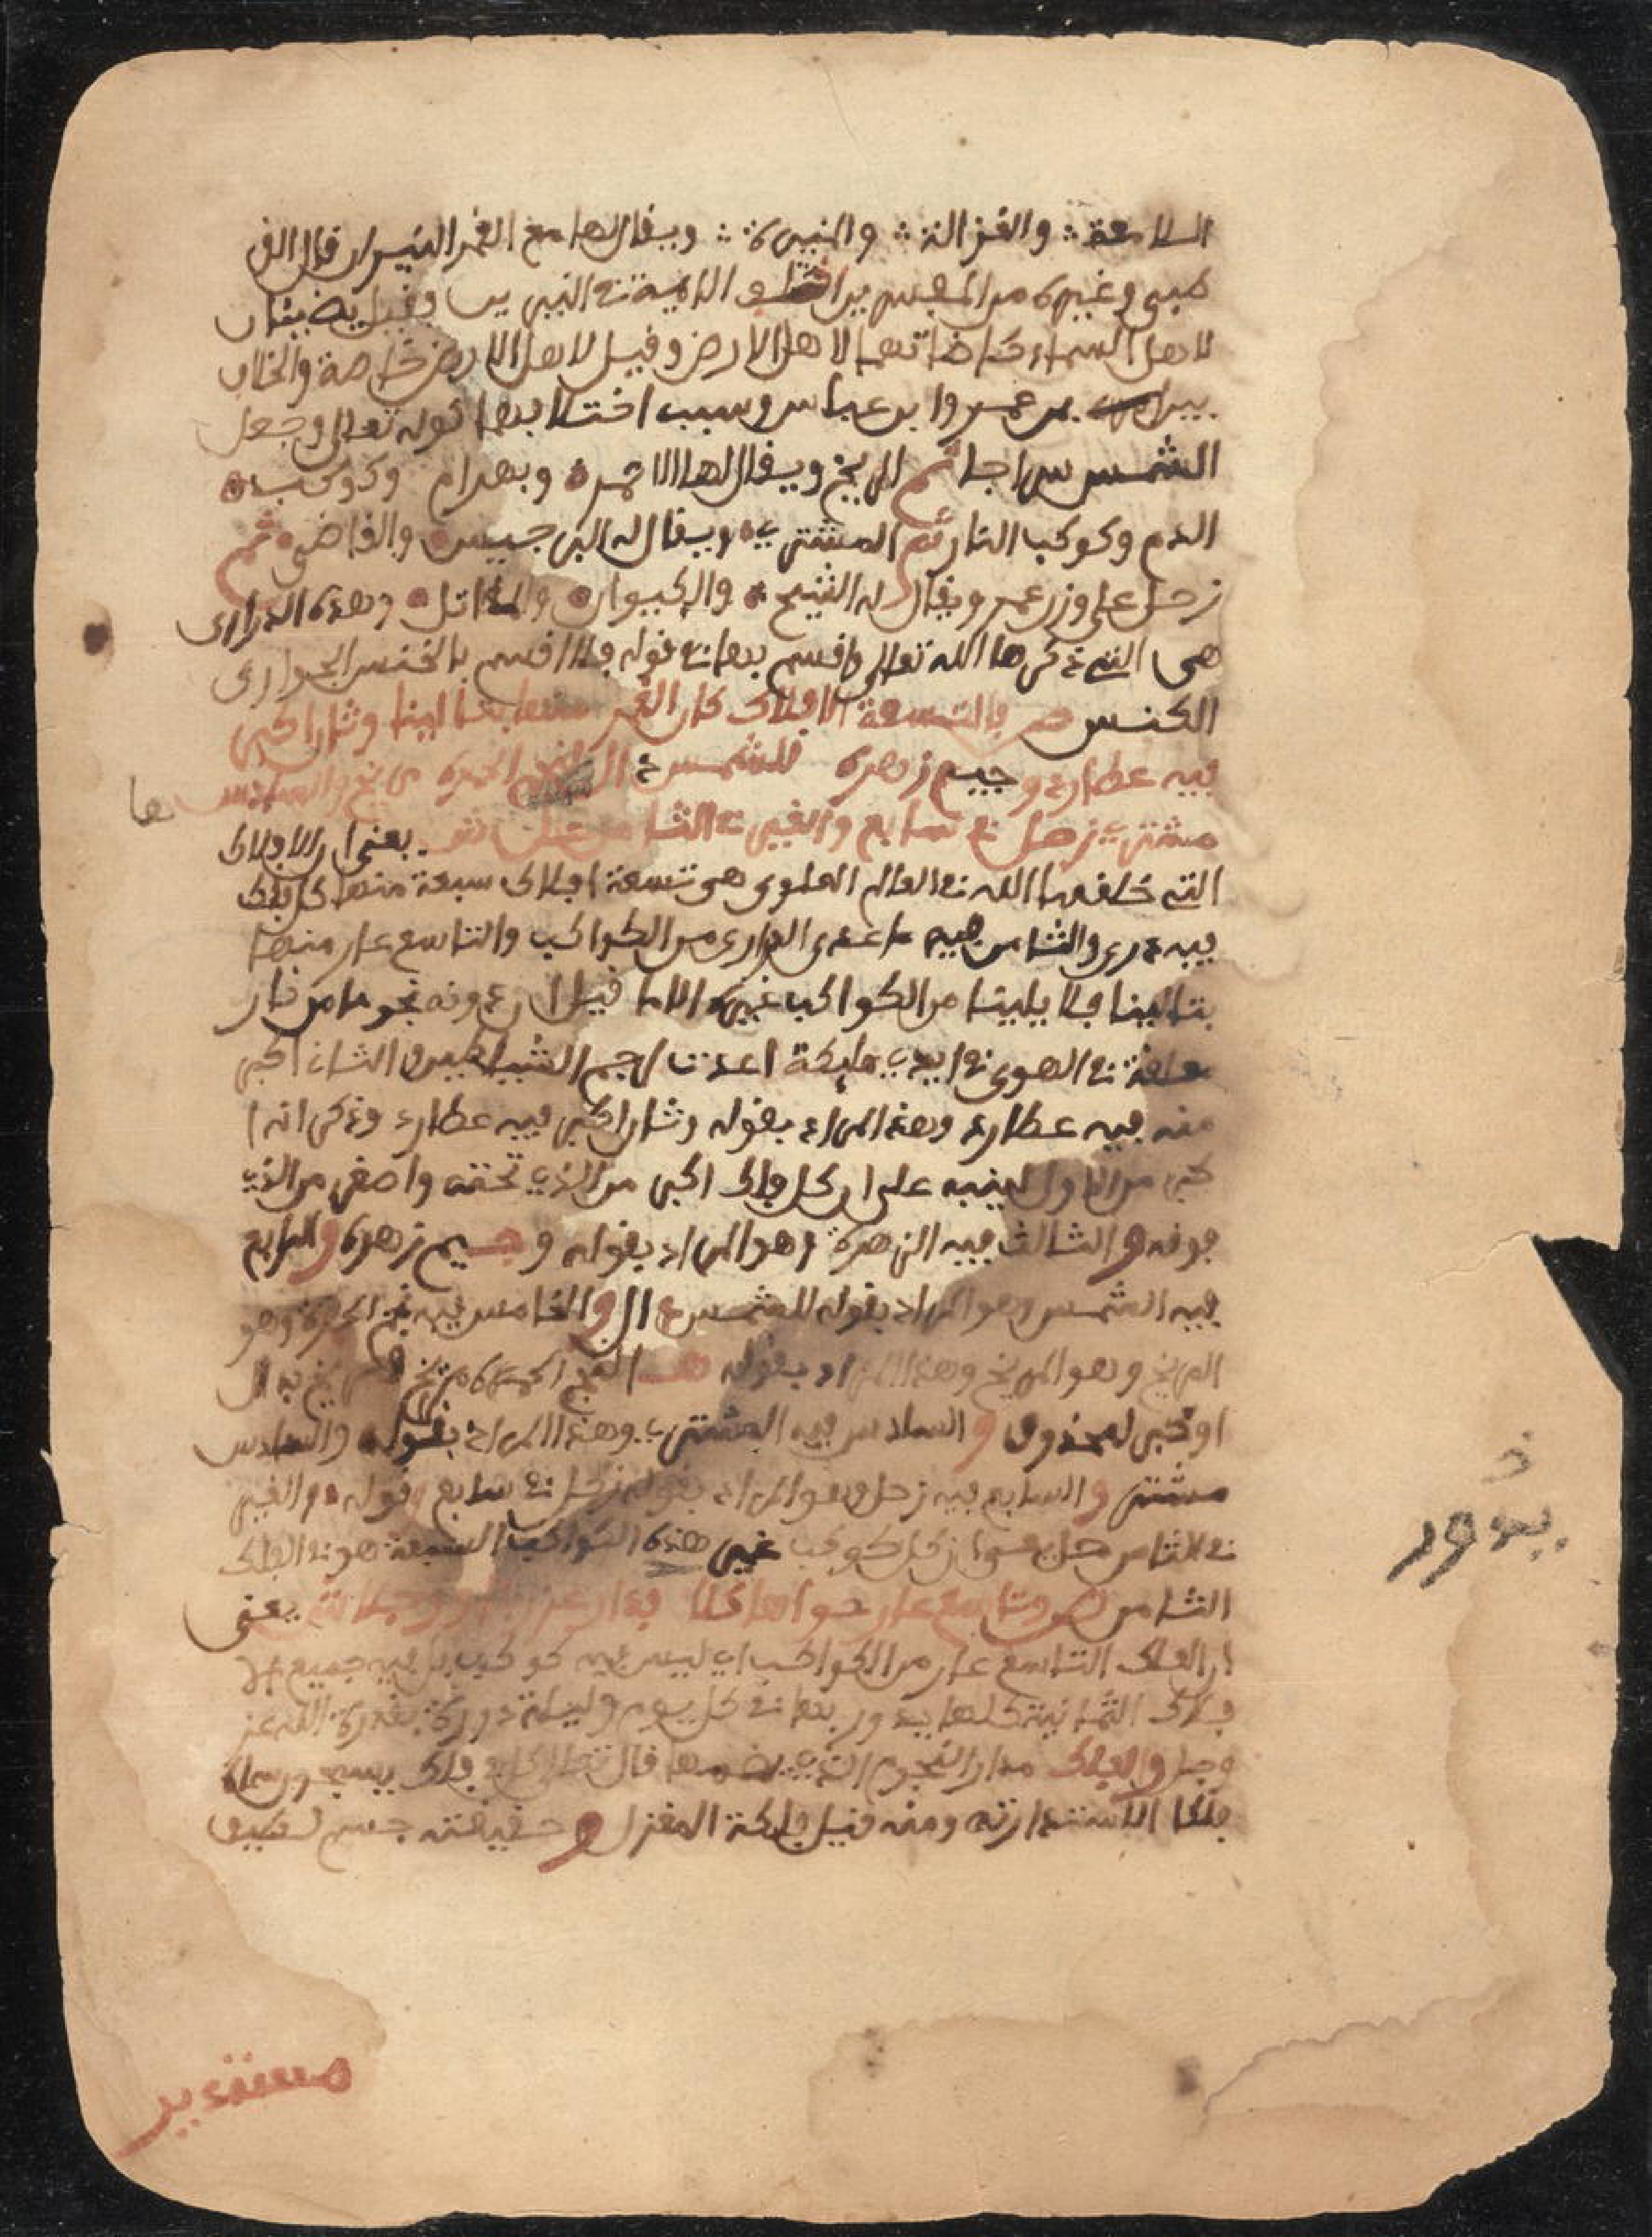 اللامعة ؞ والغزالة ؞ والنيرة ؞ ويقال لها مع القمر النيران قال القر
طبي وغيره من المفسرين الامة في النيرين وقيل يضيئان
لاهل السماء كاضاتهما لاهل الارض وقيل لاهل الارض خاصة والخلاف
بين بن عمر وابن عباس وسبب اختلافهما قوله تعالى وجعل
الشمس سراجا ثم المريخ ويقال لها الاحمر وبهرام وكوكب
الدم وكوكب النار ثم المشتري ويقال له البرجيس والقاضي ثم
زحل على وزن عمر ويقال له الشيخ والكيوان والمقاتل وهذه الدراري
هي التي ذكرها الله تعالى واقسم بها في قوله فلا اقسم بالخنس الجواري
الكنس بالتسعة الافلاك كان القمر منها بتالينا وثان اكبر
فيه عطارد وجيم زهرة للشمس دال النجم الحمرة مريخ والسادس ها
مشتر زحل في سابع والغير في الثامن يعني ان الافلاك
التي خلقها الله في العالم العلوي هي تسعة افلاك سبعة منها كل فلك
فيه دري والثامن فيه ما عدى الدراري من الكواكب والتاسع عار منها
بتالينا فلا يلينا من الكواكب غيره الا ما قيل ان دونه نجوما من نار
معلقة في الهوى في ايدي مليكة اعدت لرجم الشياطين والثاني اكبر
منه فيه عطارد وهذا المراد بقوله وثان اكبر فيه عطارد وذكر انه ا
كبر من الاول لينبه على ان كل فلك اكبر من الذي تحته واصغر من الذي
فوقه والثالث فيه الزهرة وهو المراد بقوله وجيم زهرة والرابع
فيه الشمس وهو المراد بقوله للشمس دال والخامس فيه نجم الحمرة وهو
المريخ وهو المريخ وهذا المراد بقوله النجم الحمرة مريخ
او خبر لمحذوف والسادس فيه المشتري وهذا المراد بقوله والسادس
مشتر والسابع فيه زحل وهو المراد بقوله زحل في سابع وقوله والغير
في الثامن ان كل كوكب غير هذه الكواكب السبعة هو في الفلك
الثامن وتاسع عار حواها كلا يعني
ان الفلك التاسع عار من الكواكب اي ليس فيه كوكب بل فيه جميع الا
فلاك الثمانية كلها يدور بها في كل يوم وليلة دورة بقدرة الله عز
وجل والفلك مدار النجوم الذي يضمها قال تعالى كل في فلك يسبحون سماه
فلكا لاستدارته ومنه قيل فلكة المغزل وحقيقته جسم لطيف
مستدير